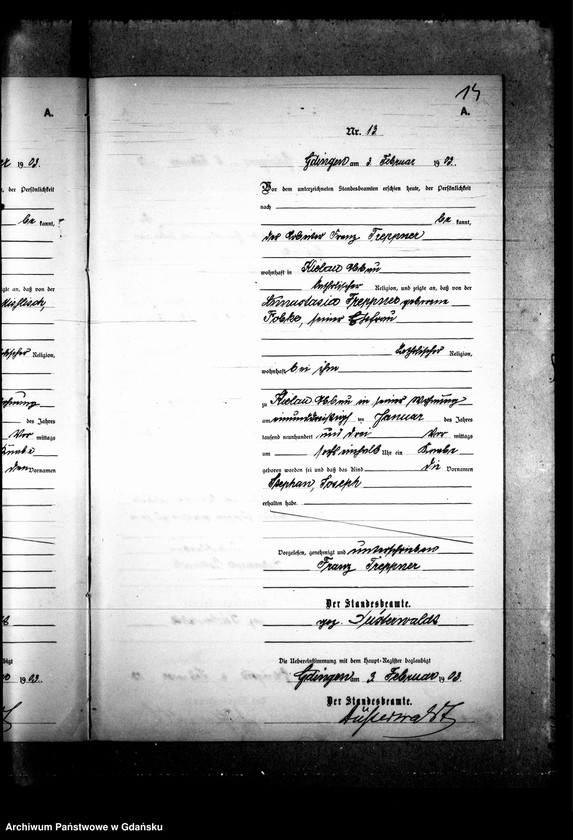 A.
19 03.
der Persönlichkeit
be kannt,
zeigte an, daß von der
Religion,
Wohnung
des Jahres
Vor mittags
Knabe
den Vornamen
19 03.
14
A.
Nr. 13
Gdingen am 3. Februar 19 03.
Vor dem unterzeichneten Standesbeamten erschien heute, der Persönlichkeit
nach
be kannt,
der Arbeiter Franz Treppner
wohnhaft in Kielau Abbau
katholischer Religion, und zeigte an, daß von der
Anastasia Treppner geborene
seiner Ehefrau
katholischer Religion,
wohnhaft bei ihm
zu Kielau Abbau in seiner Wohnung
am einunddreißigsten Januar des Jahres
tausend neunhundert und drei Vor mittags
um sechs einhalb Uhr ein Knabe
geboren worden sei und daß das Kind die Vornamen
Stephan, Joseph
erhalten habe.
Vorgelesen, genehmigt und unterschrieben
Franz Treppner
Der Standesbeamte.
gez. Süsterwaldt
Die Uebereinstimmung mit dem Haupt-Register beglaubigt
Gdingen am 3. Februar 19 03.
Der Standesbeamte.
Süsterwaldt
Archiwum Państwowe w Gdańsku